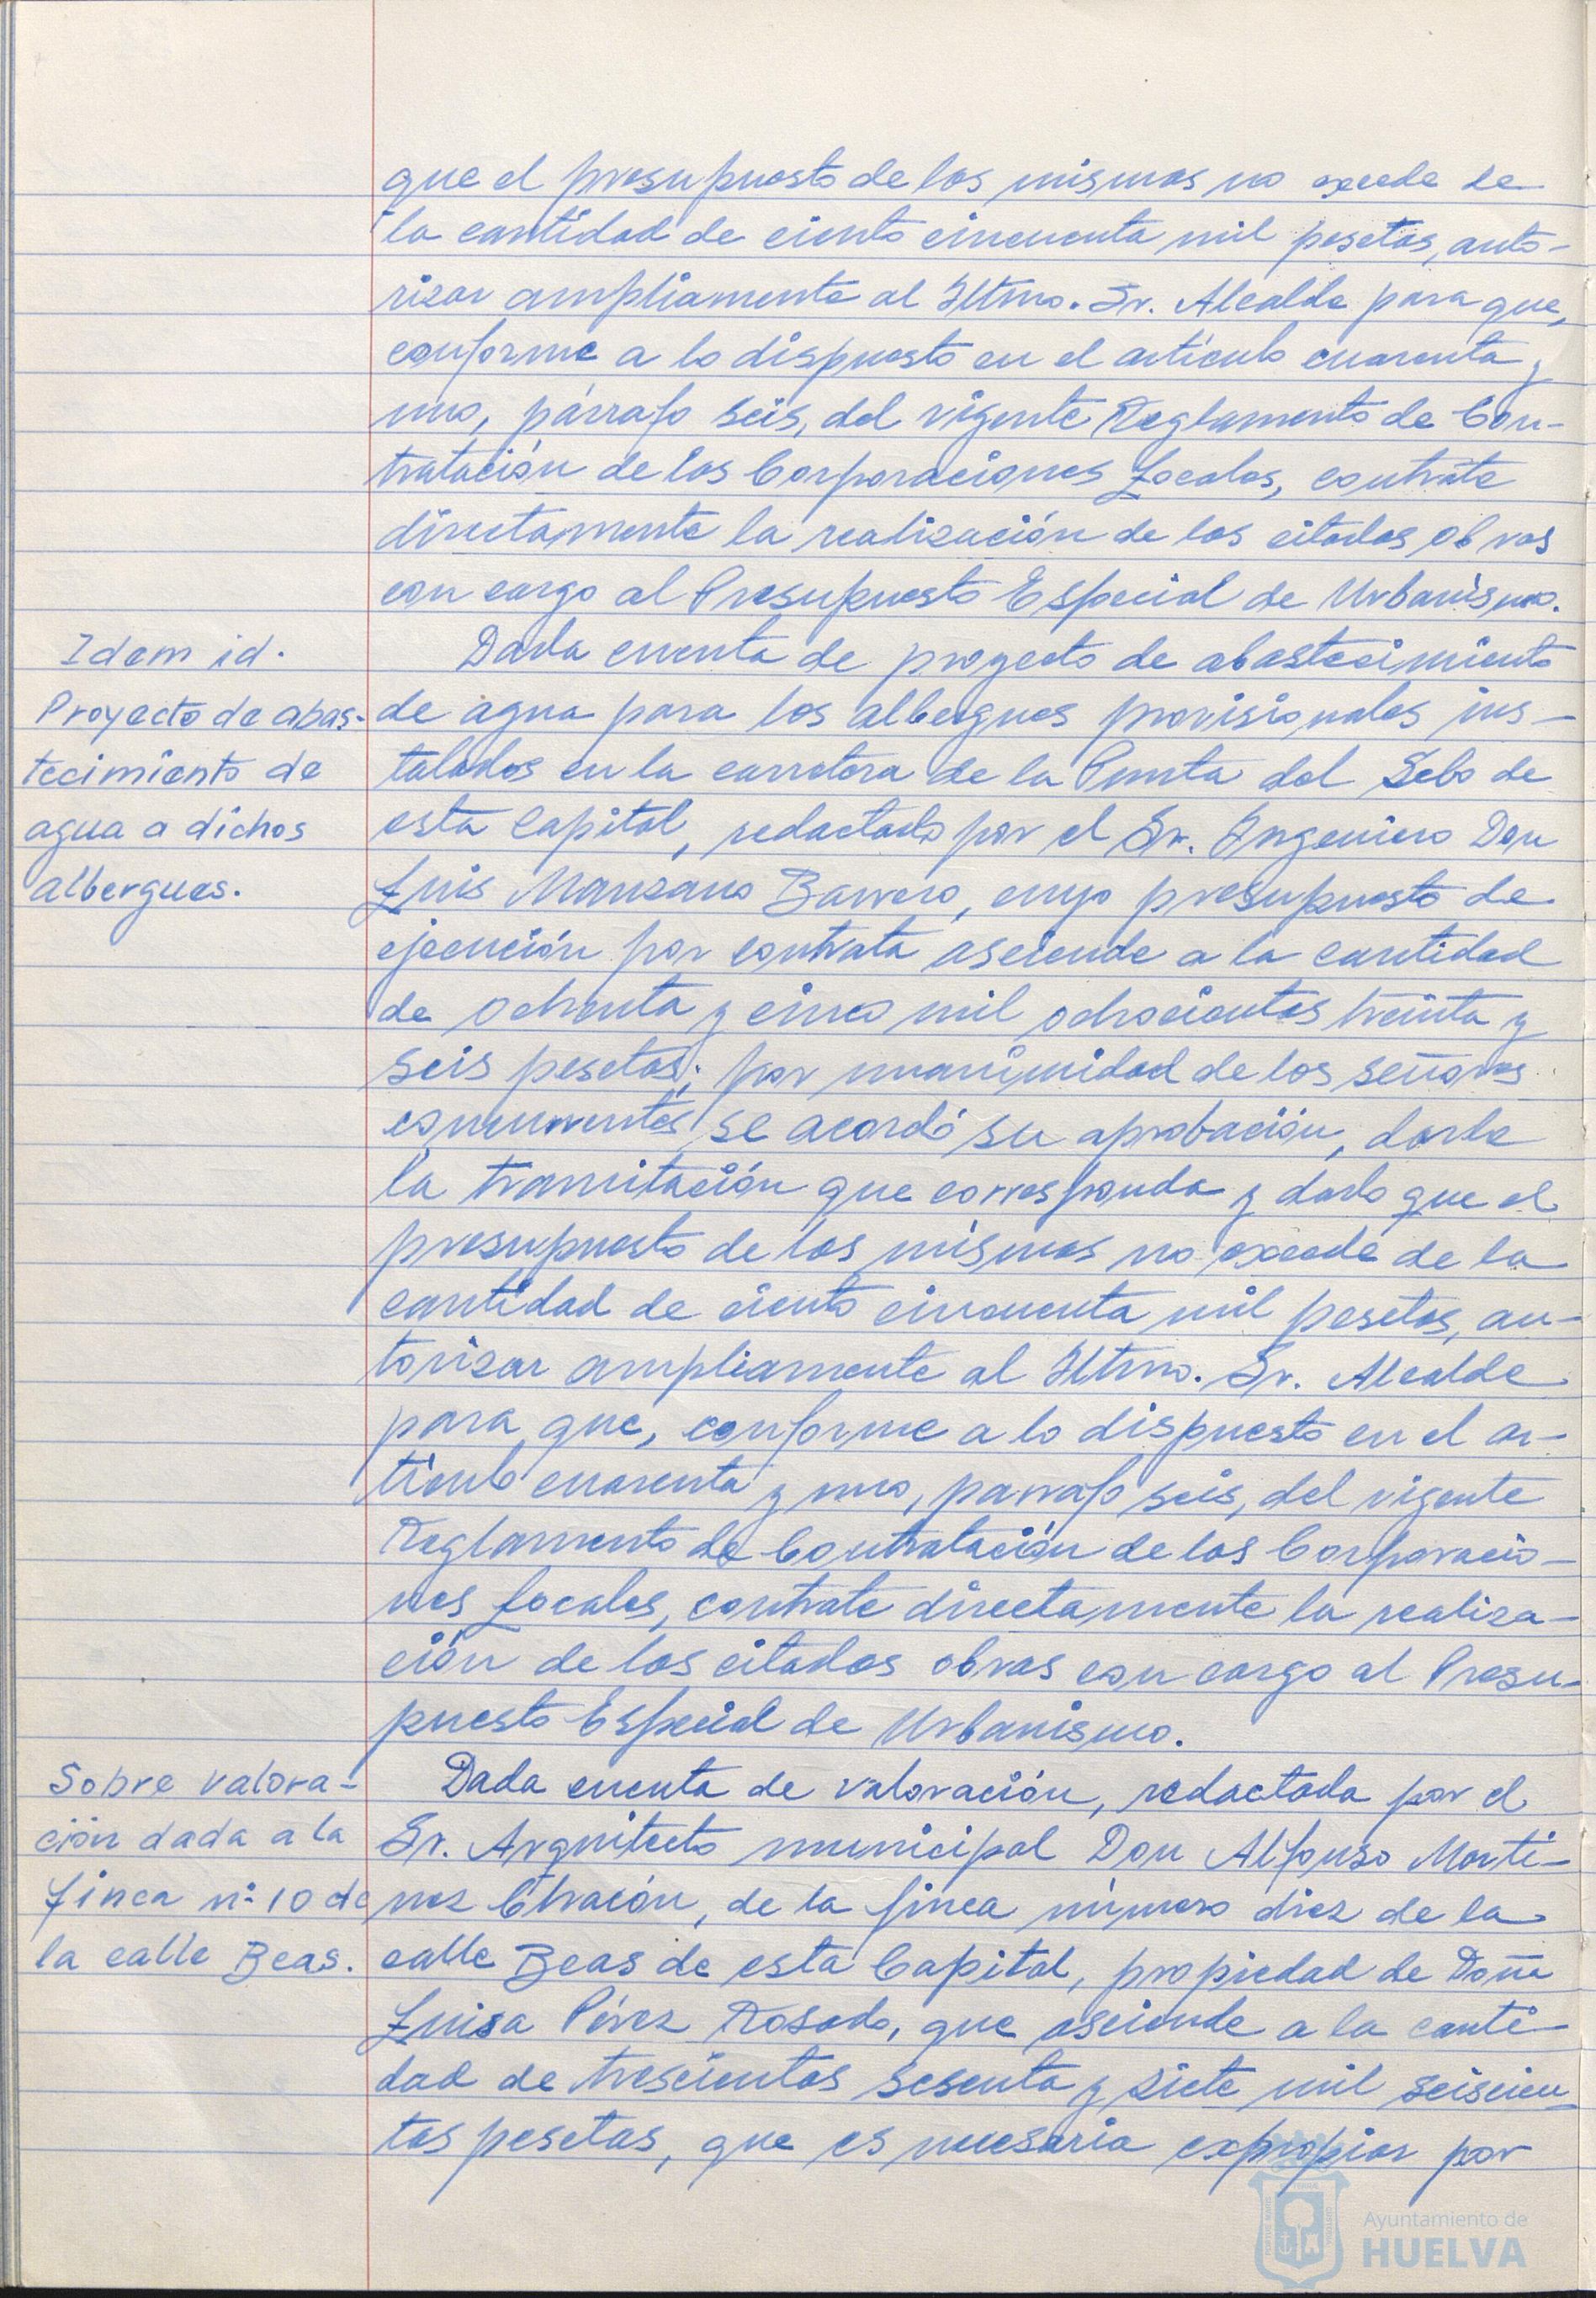 que el presupuesto de los mismos no excede de
la cantidad de ciento cincuenta mil pesetas, auto-
rizar ampliamente al Iltmo. Sr. Alcalde para que,
conforme a lo dispuesto en el artículo cuarenta y
uno, párrafo seis, del vigente Reglamento de Con-
tratación de las Corporaciones Locales, contrate
directamente la realización de las citadas obras
con cargo al Presupuesto Especial de Urbanismo.
Idem id.
Proyecto de abas-
tecimiento de
agua a dichos
albergues.
Dada cuenta de proyecto de abastecimiento
de agua para los albergues provisionales ins-
talados en la carretera de la Punta del Sebo de
esta Capital, redactado por el Sr. Ingeniero Don
Luis Manzano Barrero, cuyo presupuesto de
ejecución por contrata asciende a la cantidad
de ochenta y cinco mil ochocientas treinta y
seis pesetas; por unanimidad de los señores
concurrentes se acordó su aprobación, darle
la tramitación que corresponda y dado que el
presupuesto de los mismos no excede de la
cantidad de ciento cincuenta mil pesetas, au-
torizar ampliamente al Iltmo. Sr. Alcalde
para que, conforme a lo dispuesto en el ar-
tículo cuarenta y uno, parrafo seis, del vigente
Reglamento de Contratación de las Corporacio-
nes Locales, contrate directamente la realiza-
ción de las citadas obras con cargo al Presu-
puesto Especial de Urbanismo.
Sobre valora-
ción dada a la
finca nº 10 de
la calle Beas.
Dada cuenta de valoración, redactada por el
Sr. Arquitecto municipal Don Alfonso Martí-
nez Chacón, de la finca número diez de la
calle Beas de esta Capital, propiedad de Doña
Luisa Pérez Rosado, que asciende a la canti-
dad de trescientas sesenta y siete mil seiscien-
tas pesetas, que es necesaria expropiar por
Ayuntamiento de
HUELVA